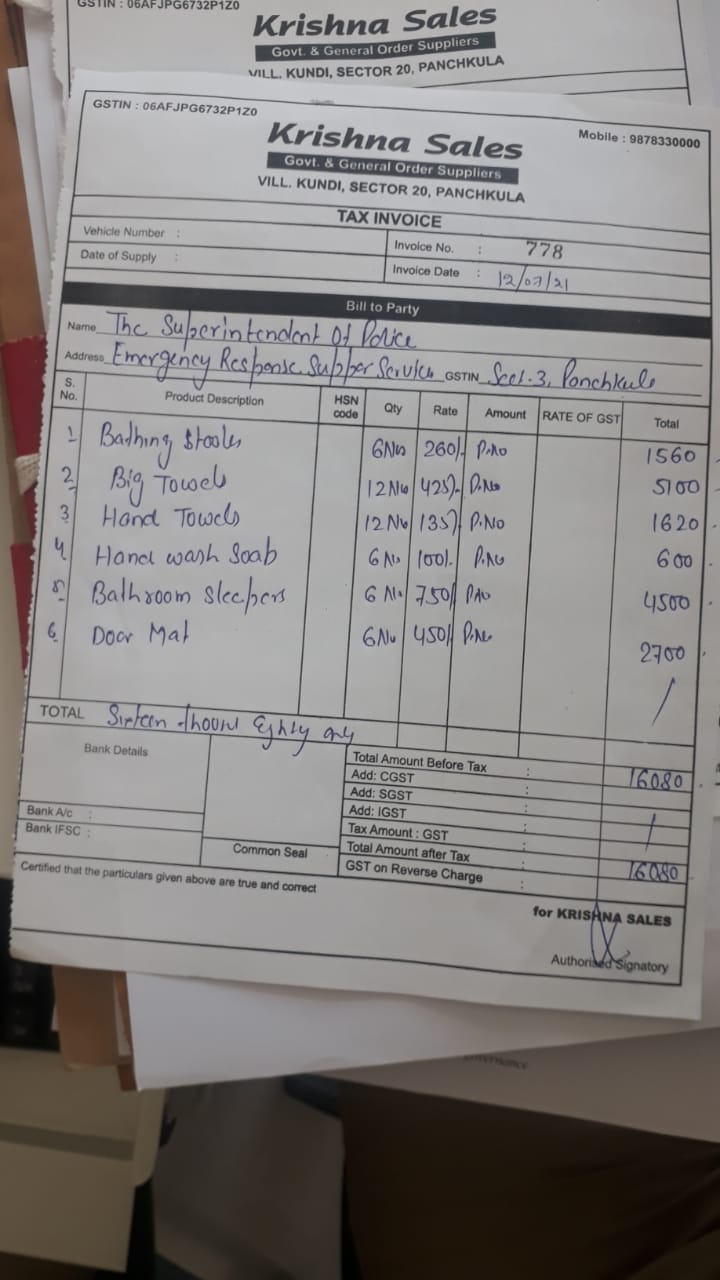 GSTIN : 06AFJPG6732P1Z0
Krishna Sales
Govt. & General Order Suppliers
VILL. KUNDI, SECTOR 20, PANCHKULA
GSTIN : 06AFJPG6732P1Z0
Mobile : 9878330000
Krishna Sales
Govt. & General Order Suppliers
VILL. KUNDI, SECTOR 20, PANCHKULA
TAX INVOICE
Vehicle Number :
Invoice No. : 778
Date of Supply :
Invoice Date : 12/07/21
Bill to Party
Name The Superintendent Of Police
Address Emergency Response Suppor Service GSTIN Sect. 3, Panchkula
S. No. Product Description HSN code Qty Rate Amount RATE OF GST Total
1 Bathing Stools 6 Nos 260/- P.No 1560
2 Big Towels 12 No 425/- P.No 5100
3 Hand Towels 12 No 135/- P.No 1620
4 Hand wash Soab 6 No 100/- P.No 600
5 Bathroom Sleepers 6 No 750/- P.No 4500
6 Door Mat 6 No 450/- P.No 2700
TOTAL Sixteen thousand Eighty only
Bank Details
Total Amount Before Tax : 16080
Add: CGST :
Add: SGST :
Add: IGST
Bank A/c :
Tax Amount : GST :
Bank IFSC :
Total Amount after Tax : 16080
Common Seal
GST on Reverse Charge :
Certified that the particulars given above are true and correct
for KRISHNA SALES
Authorised Signatory